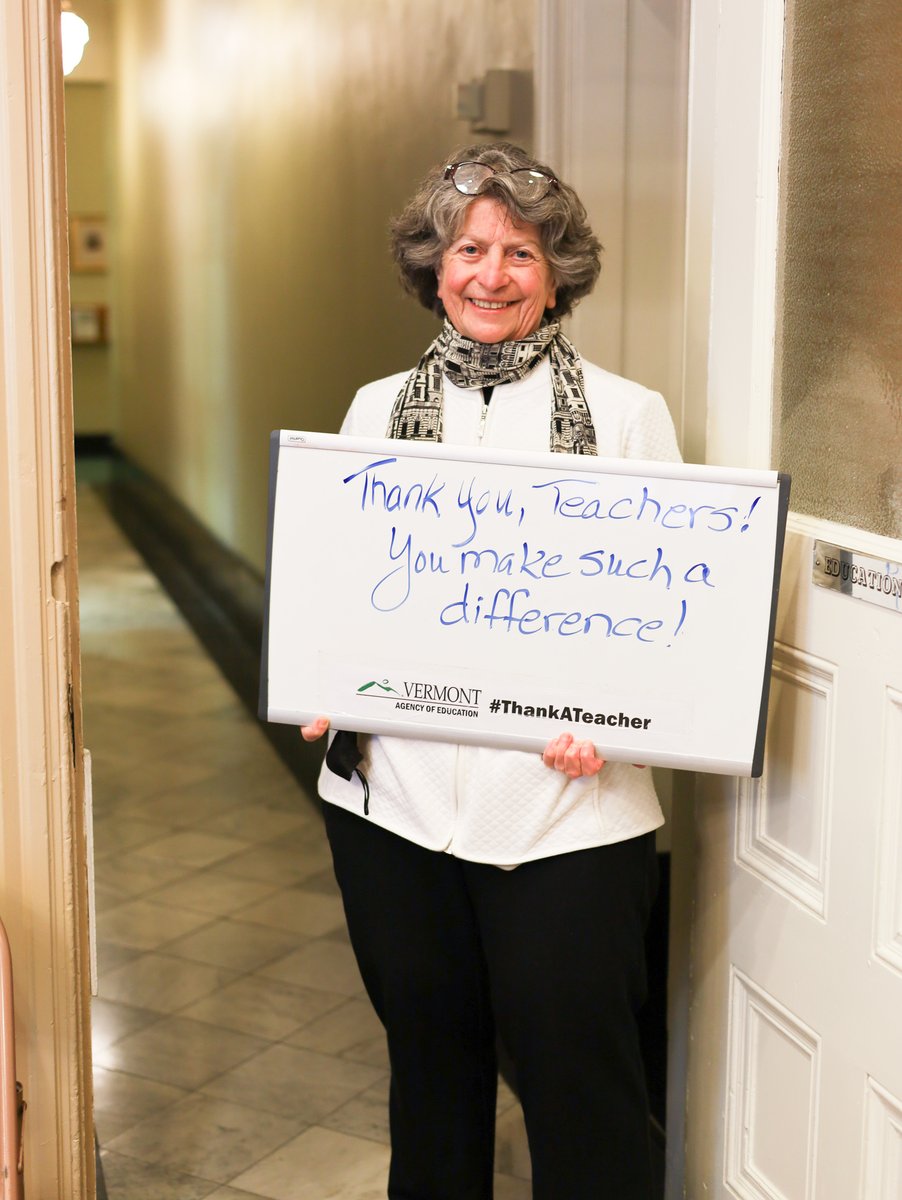 Thank you, Teachers!
You make such a
difference!
VERMONT
AGENCY OF EDUCATION
#ThankATeacher
EDUCATION